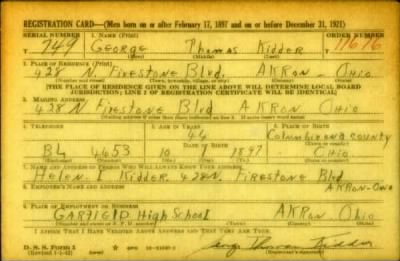 REGISTRATION CARD—(Men born on or after February 17, 1897 and on or before December 31, 1921)
SERIAL NUMBER 1. NAME (Print) ORDER NUMBER
T 749 George Thomas Kidder 11616
(First) (Middle) (Last)
2. PLACE OF RESIDENCE (Print)
428 N. Firestone Blvd. AKRON - Ohio
(Number and street) (Town, township, village, or city) (County) (State)
[THE PLACE OF RESIDENCE GIVEN ON THE LINE ABOVE WILL DETERMINE LOCAL BOARD
JURISDICTION; LINE 2 OF REGISTRATION CERTIFICATE WILL BE IDENTICAL]
3. MAILING ADDRESS
428 N Firestone Blvd AKRON Ohio
[Mailing address if other than place indicated on line 2. If same insert word same]
4. TELEPHONE 5. AGE IN YEARS 6. PLACE OF BIRTH
44 Columbiana County
BL 4653 10 7 1897 Ohio
7. NAME AND ADDRESS OF PERSON WHO WILL ALWAYS KNOW YOUR ADDRESS
Helen I Kidder 428 N. Firestone Blvd
8. EMPLOYER'S NAME AND ADDRESS AKRON-Ohio
9. PLACE OF EMPLOYMENT OR BUSINESS
GARFIELD High School AKRON Ohio
I AFFIRM THAT I HAVE VERIFIED ABOVE ANSWERS AND THAT THEY ARE TRUE.
D. S. S. Form 1
George Thomas Kidder